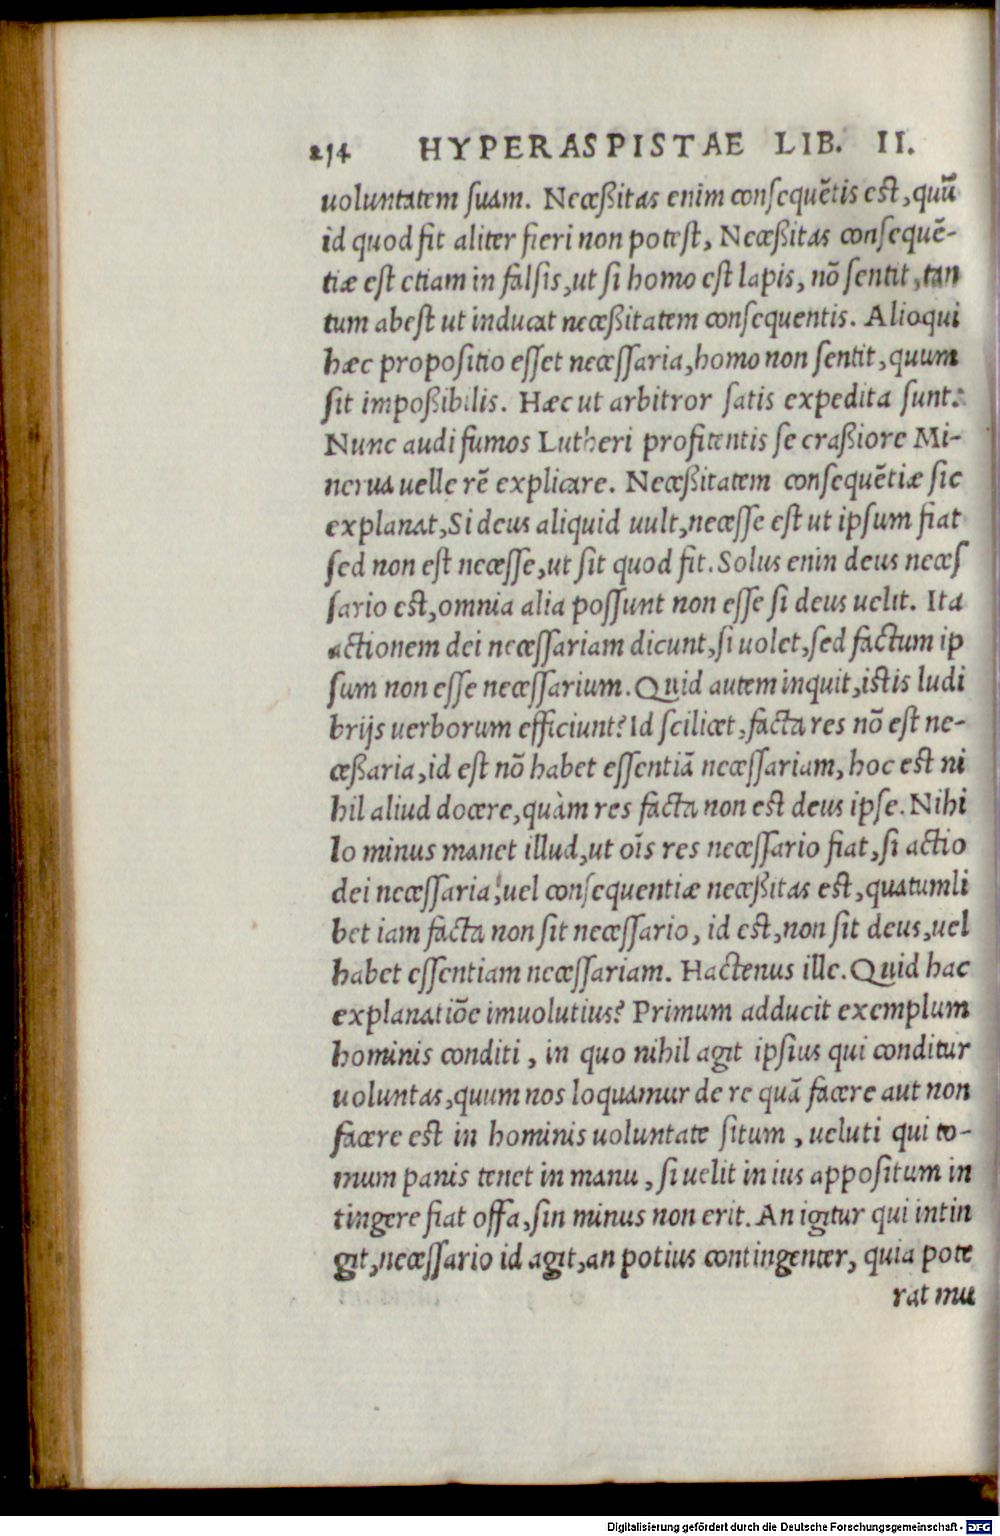 254 HYPERASPISTAE LIB. II.
uoluntatem suam. Necessitas enim consequẽtis est, quũ
id quod fit aliter fieri non potest, Necessitas consequẽ-
tiæ est etiam in falsis, ut si homo est lapis, nõ sentit, tan
tum abest ut inducat necessitatem consequentis. Alioqui
hæc propositio esset necessaria, homo non sentit, quum
sit impossibilis. Hæc ut arbitror satis expedita sunt.
Nunc audi fumos Lutheri profitentis se crassiore Mi-
nerua uelle rẽ explicare. Necessitatem consequẽtiæ sic
explanat, Si deus aliquid uult, necesse est ut ipsum fiat
sed non est necesse, ut sit quod fit. Solus enin deus neces
sario est, omnia alia possunt non esse si deus uelit. Ita
actionem dei necessariam dicunt, si uolet, sed factum ip
sum non esse necessarium. Quid autem inquit, istis ludi
brijs uerborum efficiunt? Id scilicet, facta res nõ est ne-
cessaria, id est nõ habet essentiã necessariam, hoc est ni
hil aliud docere, quàm res facta non est deus ipse. Nihi
lo minus manet illud, ut oĩs res necessario fiat, si actio
dei necessaria, uel consequentiæ necessitas est, quatumli
bet iam facta non sit necessario, id est, non sit deus, uel
habet essentiam necessariam. Hactenus ille. Quid hac
explanatiõe imuolutius? Primum adducit exemplum
hominis conditi, in quo nihil agit ipsius qui conditur
uoluntas, quum nos loquamur de re quã facere aut non
facere est in hominis uoluntate situm, ueluti qui to-
mum panis tenet in manu, si uelit in ius appositum in
tingere fiat offa, sin minus non erit. An igitur qui intin
git, necessario id agit, an potius contingenter, quia pote
rat mu
Digitalisierung gefördert durch die Deutsche Forschungsgemeinschaft - DFG